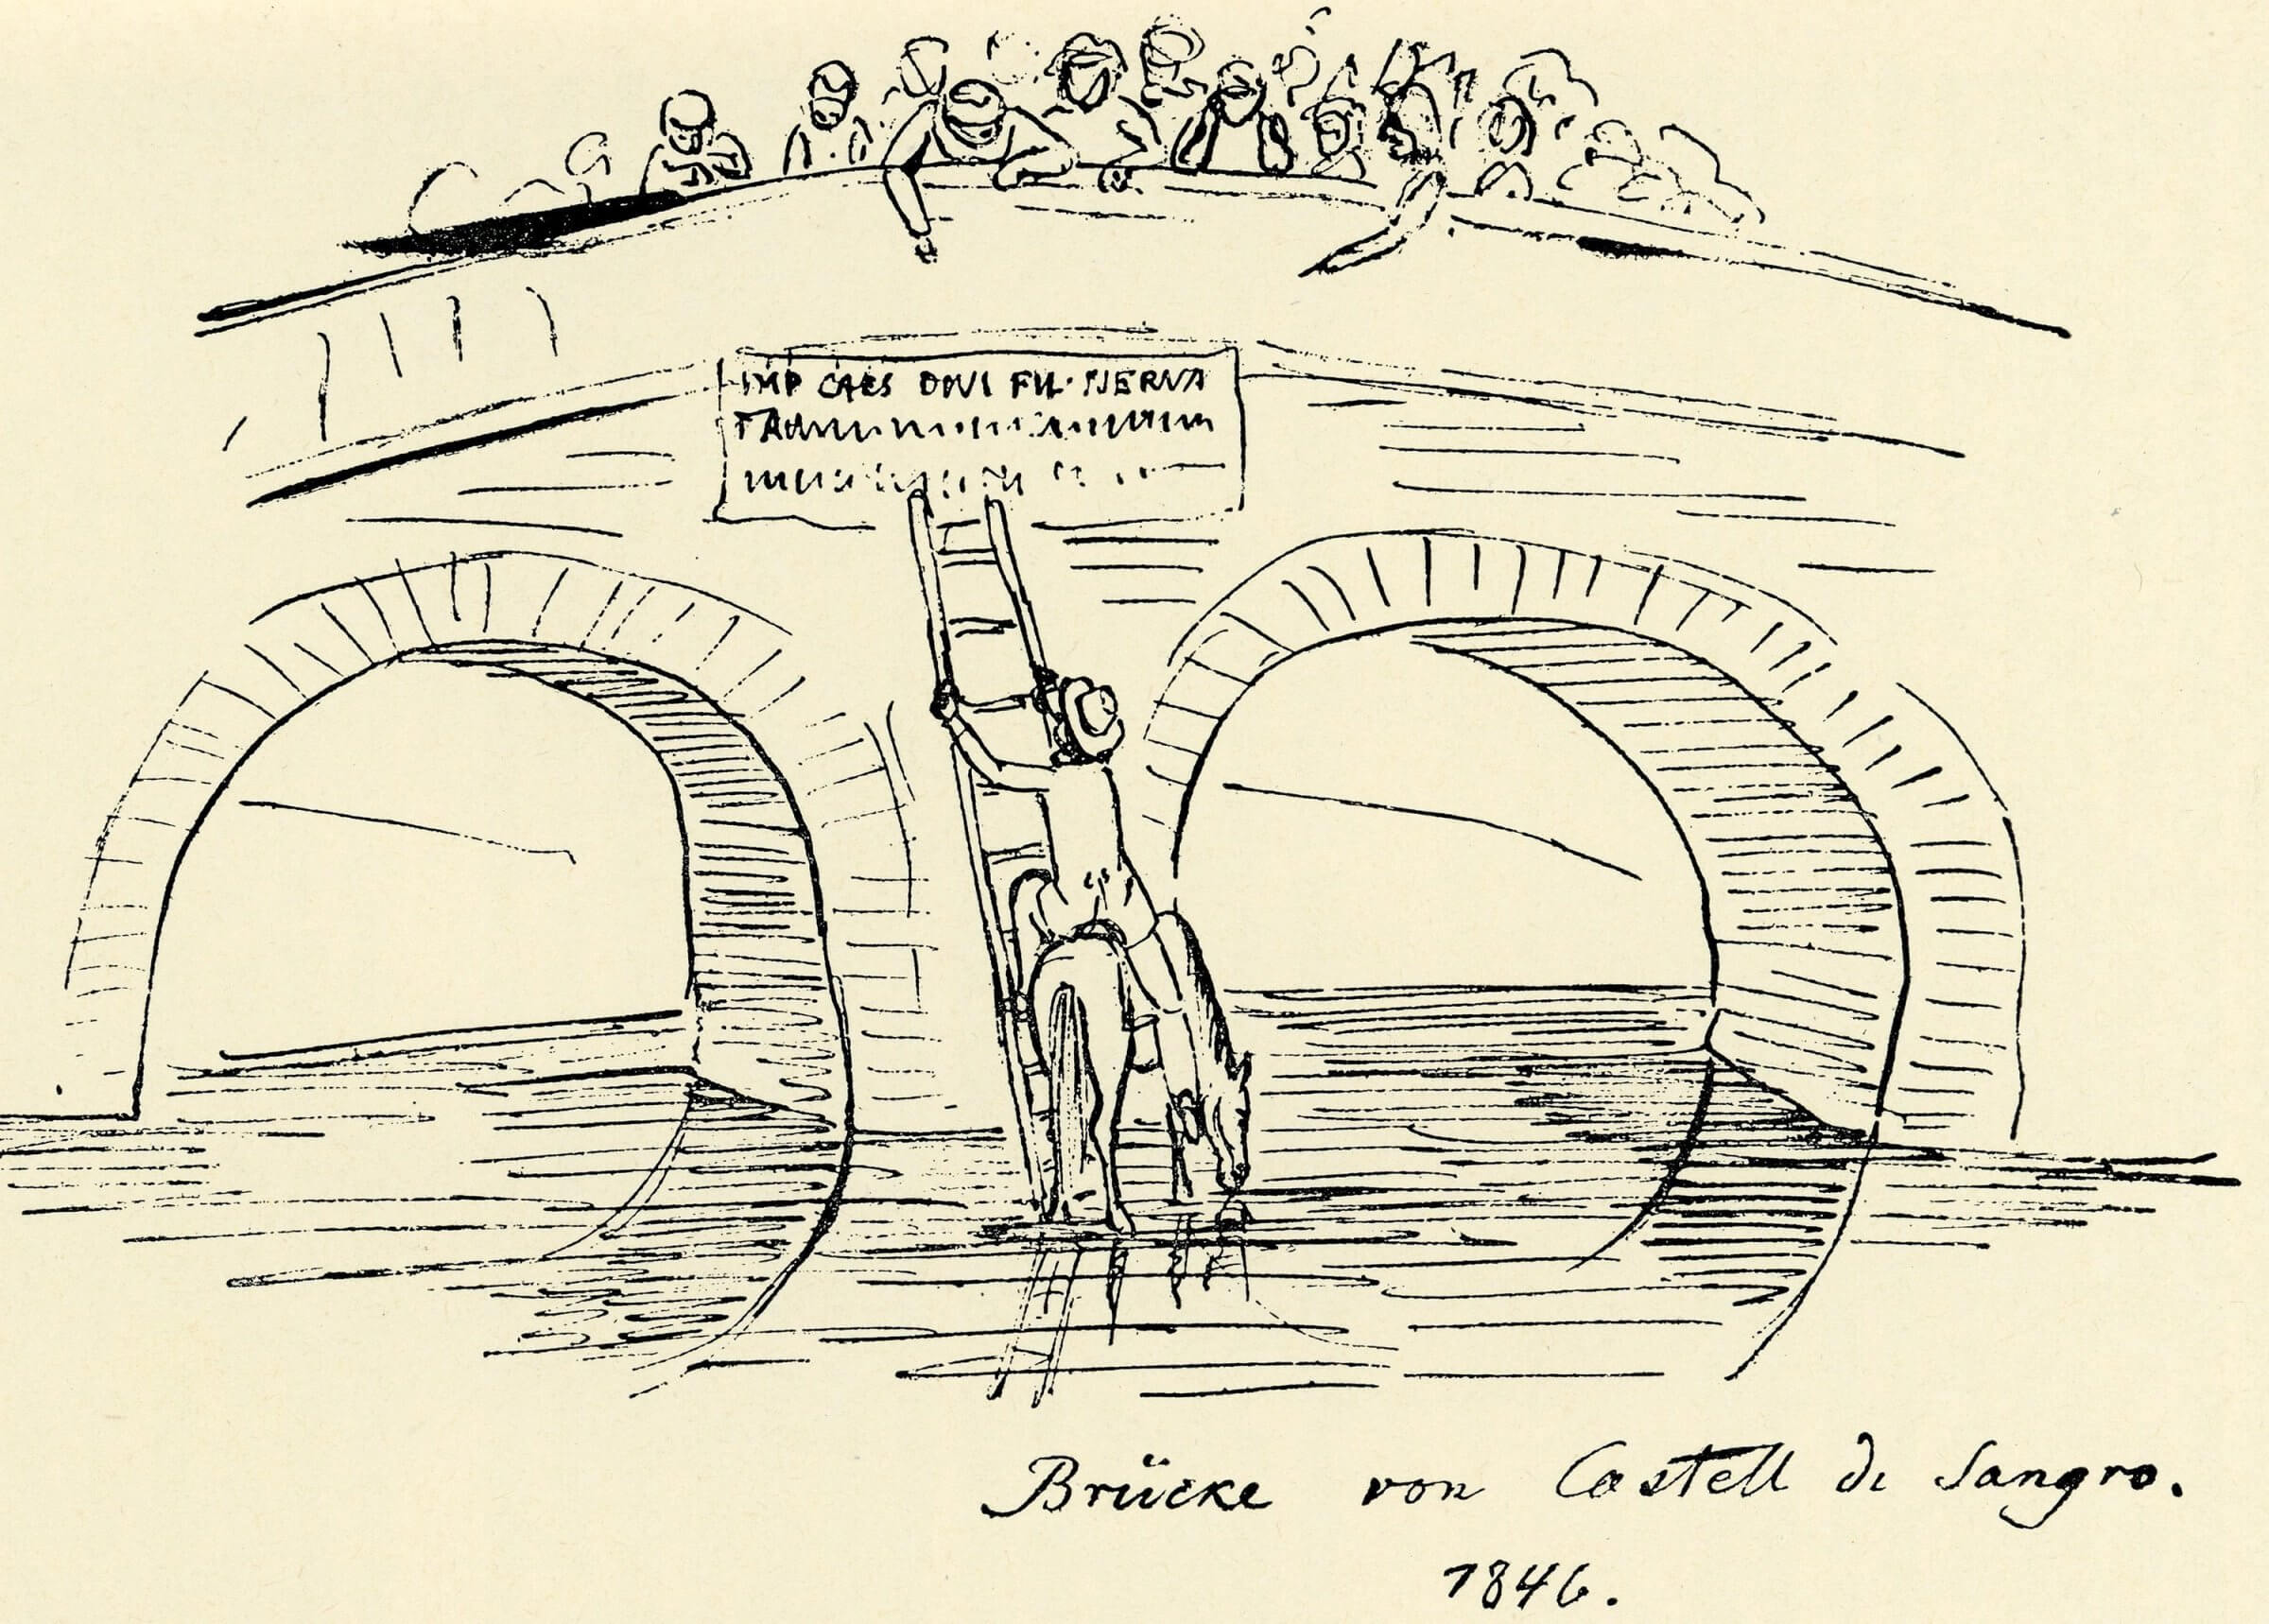 IMP CAES DIVI FIL· NERVA
TRA
Brücke von Castell di Sangro.
1846.